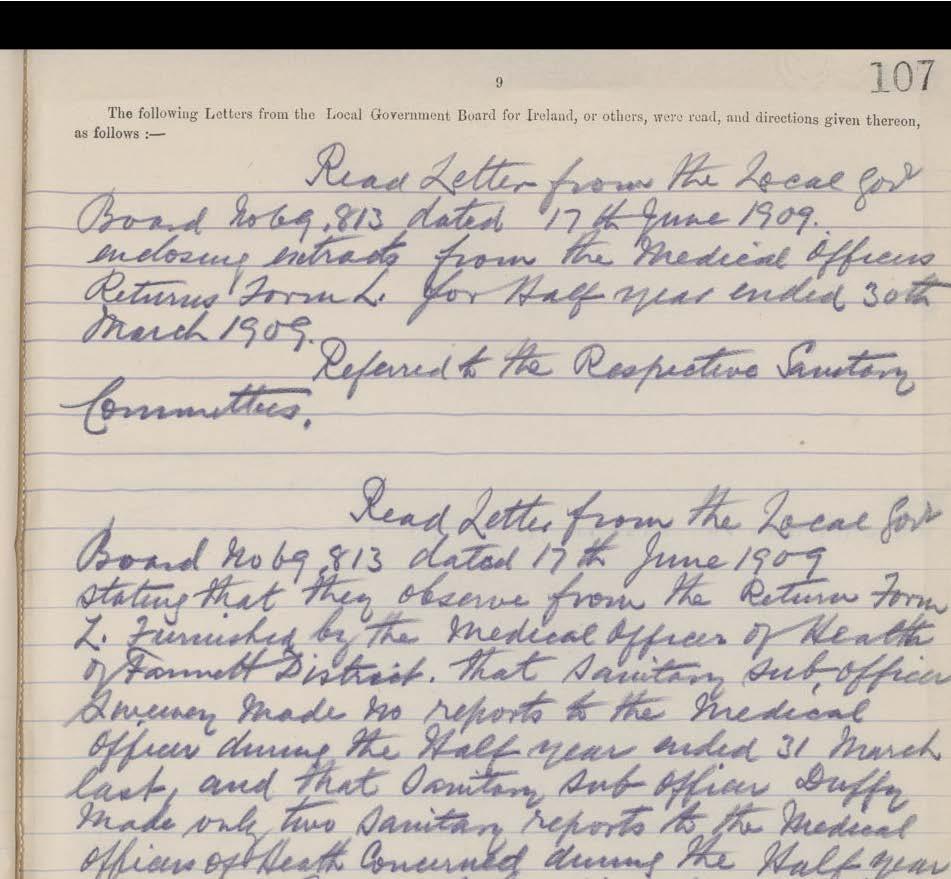 107
9
The following Letters from the Local Government Board for Ireland, or others, were read, and directions given thereon,
as follows :—
Read Letter from the Local Govt
Board No 69,813 dated 17th June 1909.
enclosing extracts from the Medical Officers
Returns Form L. for Half year ended 30th
March 1909.
Referred to the Respective Sanitary
Committees.
Read Letter from the Local Govt
Board No 69,813 dated 17th June 1909
stating that they observe from the Return Form
L. Furnished by the Medical Officer of Health
of Fannett District. That Sanitary Sub, Officer
Sweeney Made No reports to the Medical
Officer during the Half year ended 31 March
last, and that Sanitary Sub Officer Duffy
Made only two Sanitary reports to the Medical
Officers of Heath Concerned during the Half year